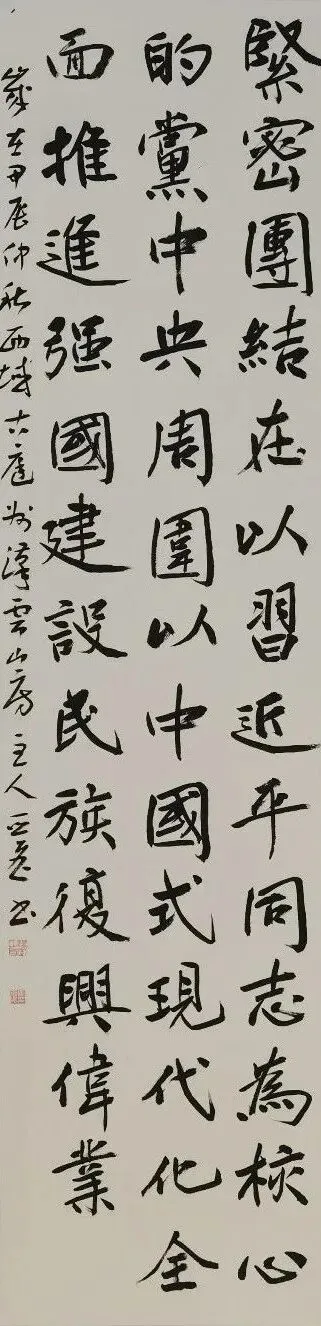 緊密團結在以習近平同志為核心
的黨中央周圍以中國式現代化全
面推進强國建設民族復興偉業
歲在甲辰仲秋西域古庭州漢雲山房主人亞